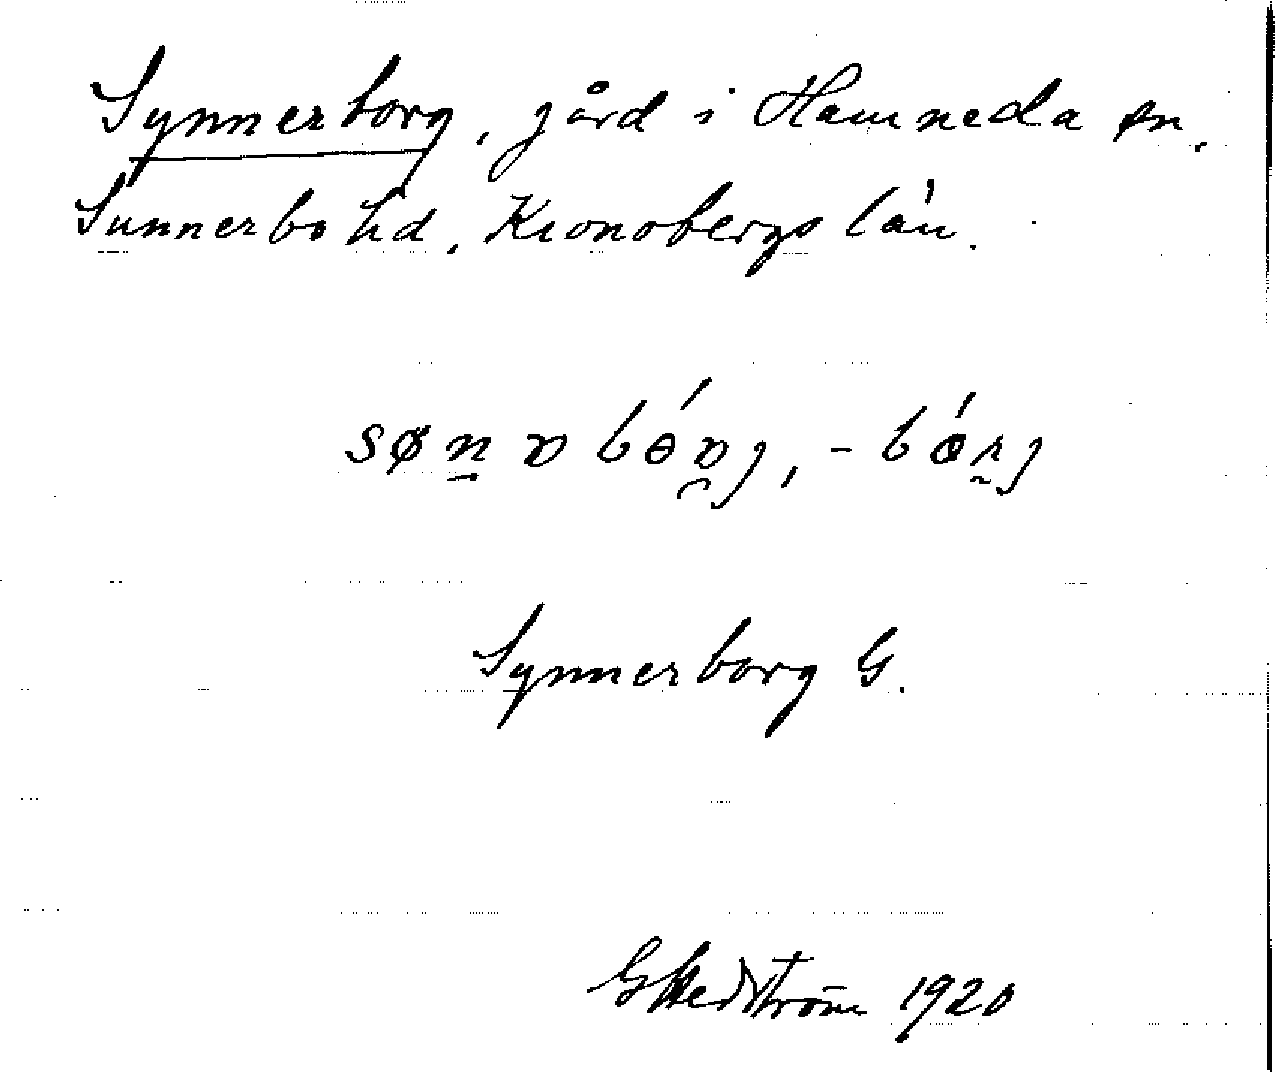 Synnerborg, gård i Hamneda sn.
Sunnerbo hd, Kronobergs län.
Synnerborg G.
G Hedström 1920